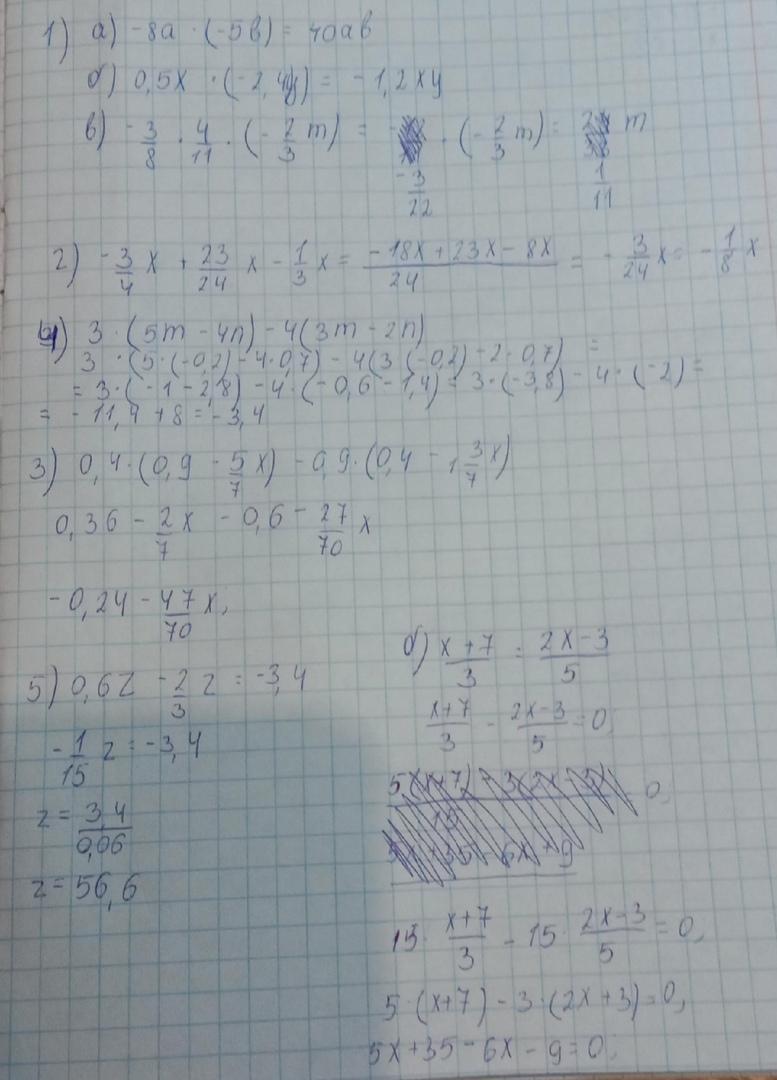 1) а) -8a · (-5в) = 40aв
б) 0,5x · (-2,4y) = -1,2xy
в) -3/8 · 4/11 · (-2/3 m) = -3/22 · (-2/3 m) = 1/11 m
2) -3/4 x + 23/24 x - 1/3 x = (-18x + 23x - 8x)/24 = -3/24 x = -1/8 x
4) 3 · (5m - 4n) - 4(3m - 2n)
3 · (5 · (-0,2) - 4·0,7) - 4(3 · (-0,2) - 2 · 0,7) =
= 3 · (-1 - 2,8) - 4 · (-0,6 - 1,4) = 3 · (-3,8) - 4 · (-2) =
= -11,4 + 8 = -3,4
3) 0,4 · (0,9 - 5/7 x) - 0,9 · (0,4 - 1 3/7 x)
0,36 - 2/7 x - 0,6 - 27/70 x
-0,24 - 47/70 x;
5) 0,6z - 2/3 z = -3,4
-1/15 z = -3,4
z = 3,4/0,06
z = 56,6
б) (x+7)/3 = (2x-3)/5
(x+7)/3 - (2x-3)/5 = 0;
0;
15 · (x+7)/3 - 15 · (2x-3)/5 = 0;
5 · (x+7) - 3 · (2x+3) = 0;
5x + 35 - 6x - 9 = 0;